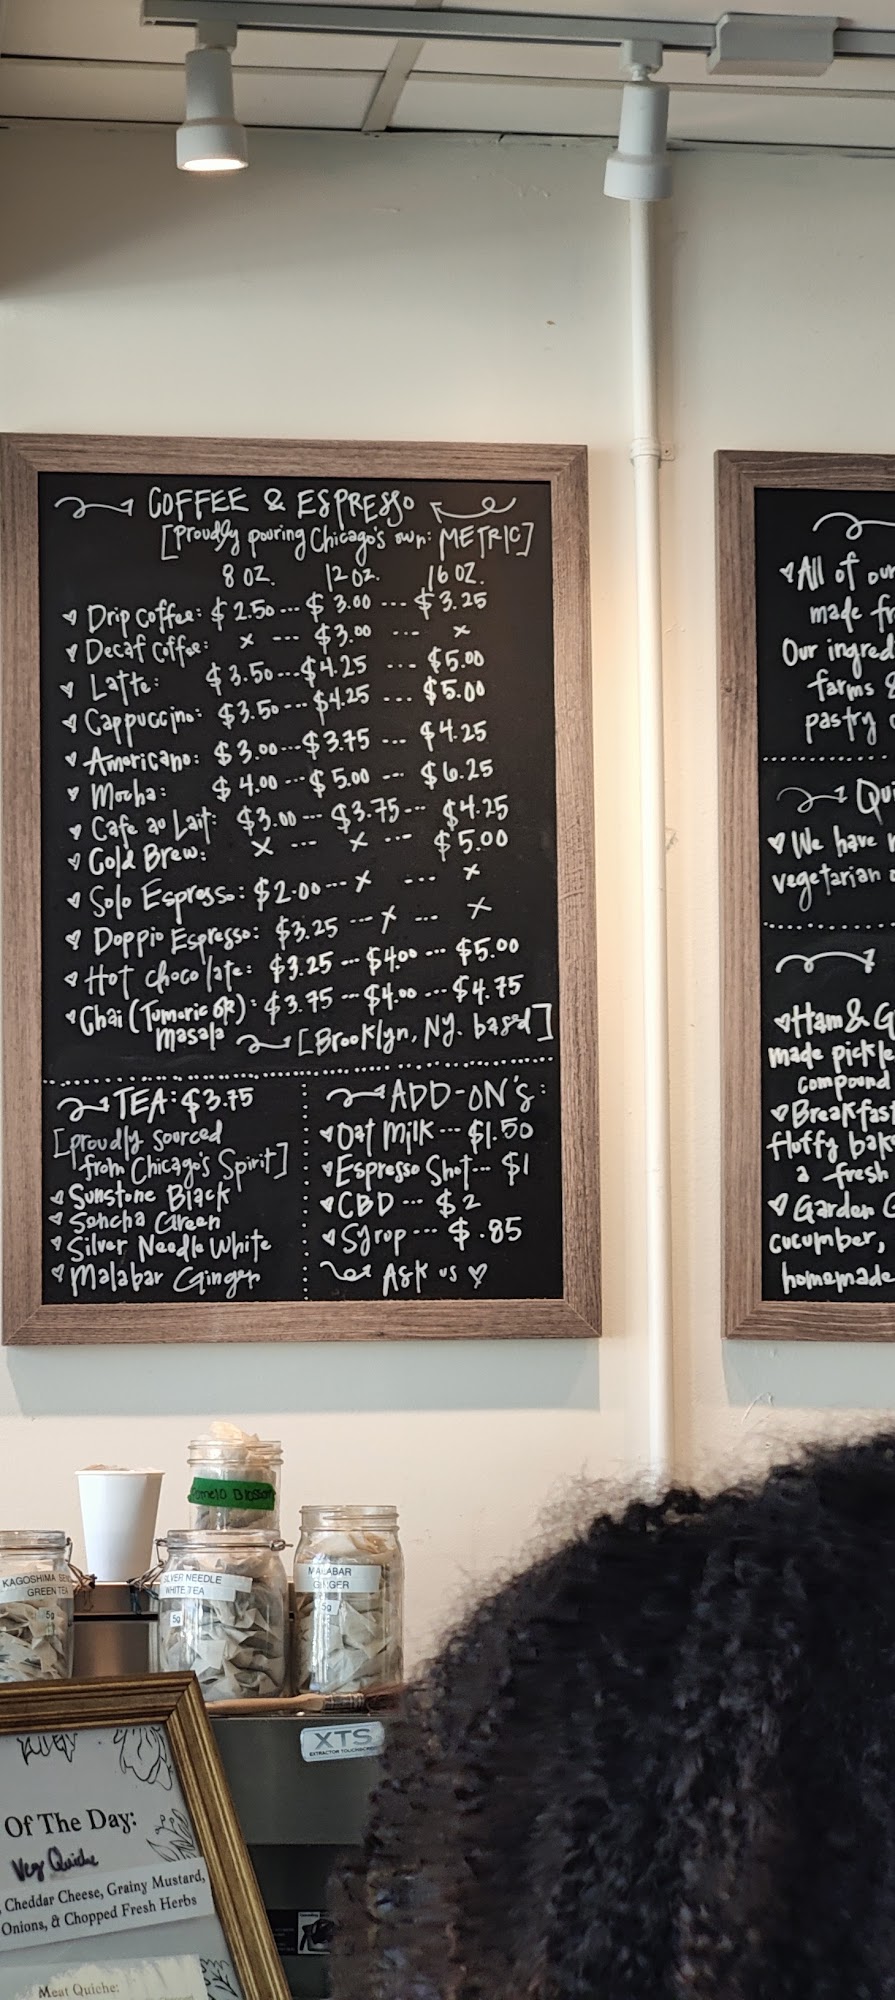 COFFEE & ESPRESSO
[Proudly pouring Chicago's own: METRIC]
8 OZ. 12 OZ. 16 OZ.
Drip Coffee: $2.50 --- $3.00 --- $3.25
Decaf Coffee: x --- $3.00 --- x
Latte: $3.50 --- $4.25 --- $5.00
Cappuccino: $3.50 --- $4.25 --- $5.00
Americano: $3.00 --- $3.75 --- $4.25
Mocha: $4.00 --- $5.00 --- $6.25
Cafe au Lait: $3.00 --- $3.75 --- $4.25
Cold Brew: x --- x --- $5.00
Solo Espresso: $2.00 --- x --- x
Doppio Espresso: $3.25 --- x --- x
Hot chocolate: $3.25 --- $4.00 --- $5.00
Chai (Tumeric OR): $3.75 --- $4.00 --- $4.75
Masala [Brooklyn, NY. based]
TEA: $3.75
[proudly sourced
from Chicago's Spirit]
Sunstone Black
Sencha Green
Silver Needle White
Malabar Ginger
ADD-ON'S:
Oat Milk --- $1.50
Espresso Shot --- $1
CBD --- $2
Syrop --- $.85
Ask us
All of our
made
Our
farms
pastry
We have
vegetarian
Ham &
made
compound
fluffy
a fresh
Garden
cucumber,
homemade
Blossom
KAGOSHIMA
GREEN TEA
5g
SILVER NEEDLE
WHITE TEA
5g
MALABAR
GINGER
5g
XTS
EXTRACTOR
Of The Day:
Veg Quiche
, Cheddar Cheese, Grainy Mustard,
Onions, & Chopped Fresh Herbs
Meat Quiche: